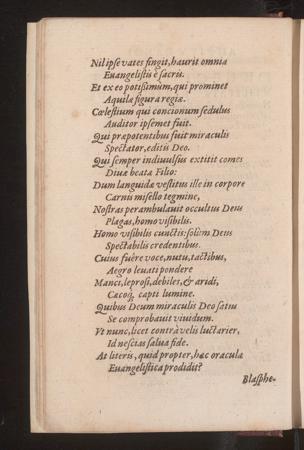 Nil ipse vates fingit, haurit omnia
Euangelistis è sacris.
Et ex eo potißimum, qui prominet
Aquila figura regiæ.
Cœlestium qui concionum sedulus
Auditor ipsemet fuit.
Qui præpotentibus fuit miraculis
Spectator, editis Deo.
Qui semper indiuulsus extitit comes
Diuæ beata Filio:
Dum languidæ vestitus ille in corpore
Carnis misello tegmine,
Nostras perambulauit occultus Deus
Plagas, homo visibilis.
Homo visibilis cunctis: solùm Deus
Spectabilis credentibus.
Cuius fuêre voce, nutu, tactibus,
Aegro leuati pondere
Manci, leprosi, debiles, & aridi,
Cacoq́, capti lumine.
Quibus Deum miraculis Deo satus
Se comprobauit viuidum.
Vt nunc, licet contrà velis luctarier,
Id nescias salua fide.
At literis, quid propter, hæc oracula
Euangelistica prodidit?
Blasphe-